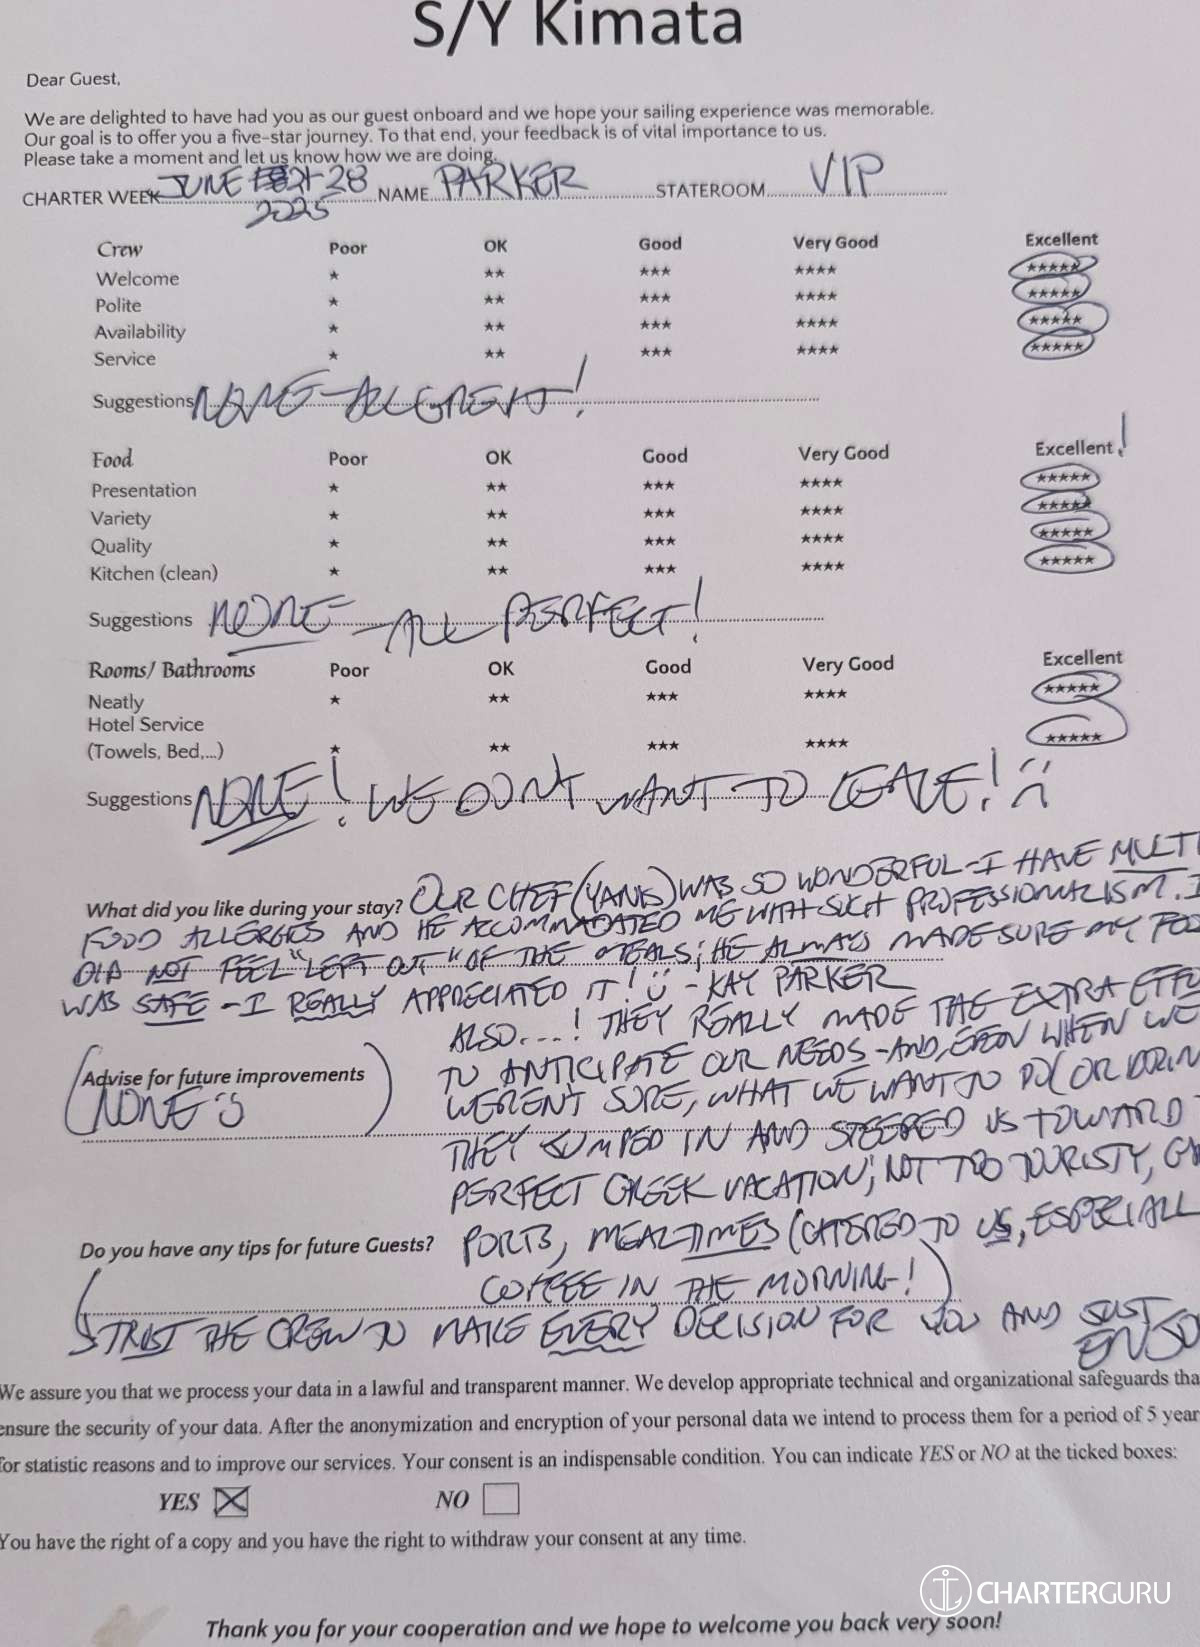 S/Y Kimata
Dear Guest,
We are delighted to have had you as our guest onboard and we hope your sailing experience was memorable.
Our goal is to offer you a five-star journey. To that end, your feedback is of vital importance to us.
Please take a moment and let us know how we are doing.
CHARTER WEEK JUNE 21-28 NAME PARKER STATEROOM VIP
2025
Crew Poor OK Good Very Good Excellent
Welcome ★ ★★ ★★★ ★★★★ ★★★★★
Polite ★ ★★ ★★★ ★★★★ ★★★★★
Availability ★ ★★ ★★★ ★★★★ ★★★★★
Service ★ ★★ ★★★ ★★★★ ★★★★★
Suggestions NONE - ALL GREAT!
Food Poor OK Good Very Good Excellent!
Presentation ★ ★★ ★★★ ★★★★ ★★★★★
Variety ★ ★★ ★★★ ★★★★ ★★★★★
Quality ★ ★★ ★★★ ★★★★ ★★★★★
Kitchen (clean) ★ ★★ ★★★ ★★★★ ★★★★★
Suggestions NONE - ALL PERFECT!
Rooms/ Bathrooms Poor OK Good Very Good Excellent
Neatly ★ ★★ ★★★ ★★★★ ★★★★★
Hotel Service
(Towels, Bed,...) ★ ★★ ★★★ ★★★★ ★★★★★
Suggestions NONE! WE DON'T WANT TO LEAVE!
What did you like during your stay? OUR CHEF (YANIS) WAS SO WONDERFUL - I HAVE MULTI
FOOD ALLERGIES AND HE ACCOMMADATED ME WITH SUCH PROFESSIONALISM. I
DID NOT FEEL "LEFT OUT" OF THE MEALS; HE ALWAYS MADE SURE MY FOO
WAS SAFE - I REALLY APPRECIATED IT! - KAY PARKER
ALSO....! THEY REALLY MADE THE EXTRA EFFO
TO ANTICIPATE OUR NEEDS - AND, EVEN WHEN WE
Advise for future improvements
(NONE)
WEREN'T SURE, WHAT WE WANT TO DO (OR DRIN
THEY JUMPED IN AND STEERED US TOWARD
PERFECT GREEK VACATION; NOT TOO TOURISTY,
Do you have any tips for future Guests?
PORTS, MEAL-TIMES (CATERED TO US, ESPECIALL
COFFEE IN THE MORNING!)
TRUST THE CREW TO MAKE EVERY DECISION FOR YOU AND JUST
ENJO
We assure you that we process your data in a lawful and transparent manner. We develop appropriate technical and organizational safeguards tha
ensure the security of your data. After the anonymization and encryption of your personal data we intend to process them for a period of 5 year
for statistic reasons and to improve our services. Your consent is an indispensable condition. You can indicate YES or NO at the ticked boxes:
YES NO
You have the right of a copy and you have the right to withdraw your consent at any time.
CHARTERGURU
Thank you for your cooperation and we hope to welcome you back very soon!